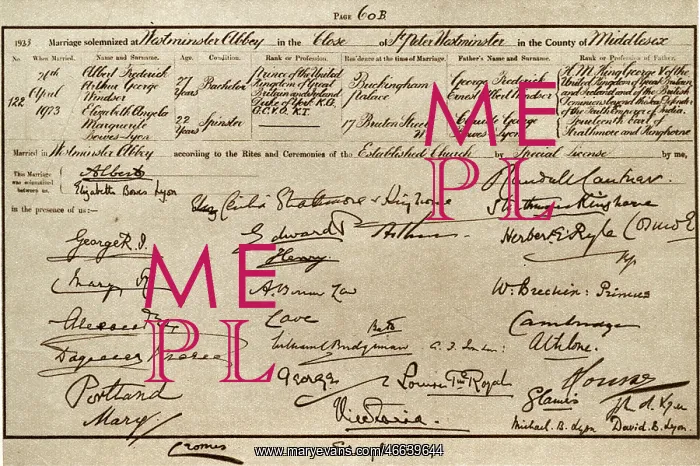 PAGE 60B
1923 Marriage solemnized at Westminster Abbey in the Close of St Peter Westminster in the County of Middlesex
No. When Married. Name and Surname. Age. Condition. Rank or Profession. Residence at the time of Marriage. Father's Name and Surname. Rank or Profession of Father.
122
April
1923
Albert Frederick
Arthur George
Windsor
Elizabeth Angela
Marguerite
Bowes-Lyon
27
Years
22
Years
Bachelor
Spinster
Prince of the United
Kingdom of Great
Britain and Ireland
Duke of York K.G.
G.C.V.O. K.T.
Buckingham
Palace
17 Bruton Street
W
George Frederick
Ernest Albert Windsor
Claude George
Bowes-Lyon
H.M. King George V of the
United Kingdom of Great Britain
and Ireland and of the British
Dominions beyond the Seas Defender
of the Faith Emperor of India.
Fourteenth Earl of
Strathmore and Kinghorne
Married in Westminster Abbey according to the Rites and Ceremonies of the Established Church by Special License by me,
This Marriage
was solemnized
between us,
Albert
Elizabeth Bowes Lyon
Randall Cantuar:
in the presence of us:—
Cecilia Strathmore & Kinghorne
Strathmore & Kinghorne
George R.I.
Edward P.
Arthur
Herbert E. Ryle
Mary R
Henry
A. Bonar Law
W. Brechin: Primus
Alexandra
Cave
Cambridge
William Bridgeman
Athlone.
George
Louise
Royal
Portland
Glamis
Mary
Victoria
Michael. B. Lyon
David. B. Lyon.
Cromer
MEPL
MEPL
www.maryevans.com/46639644